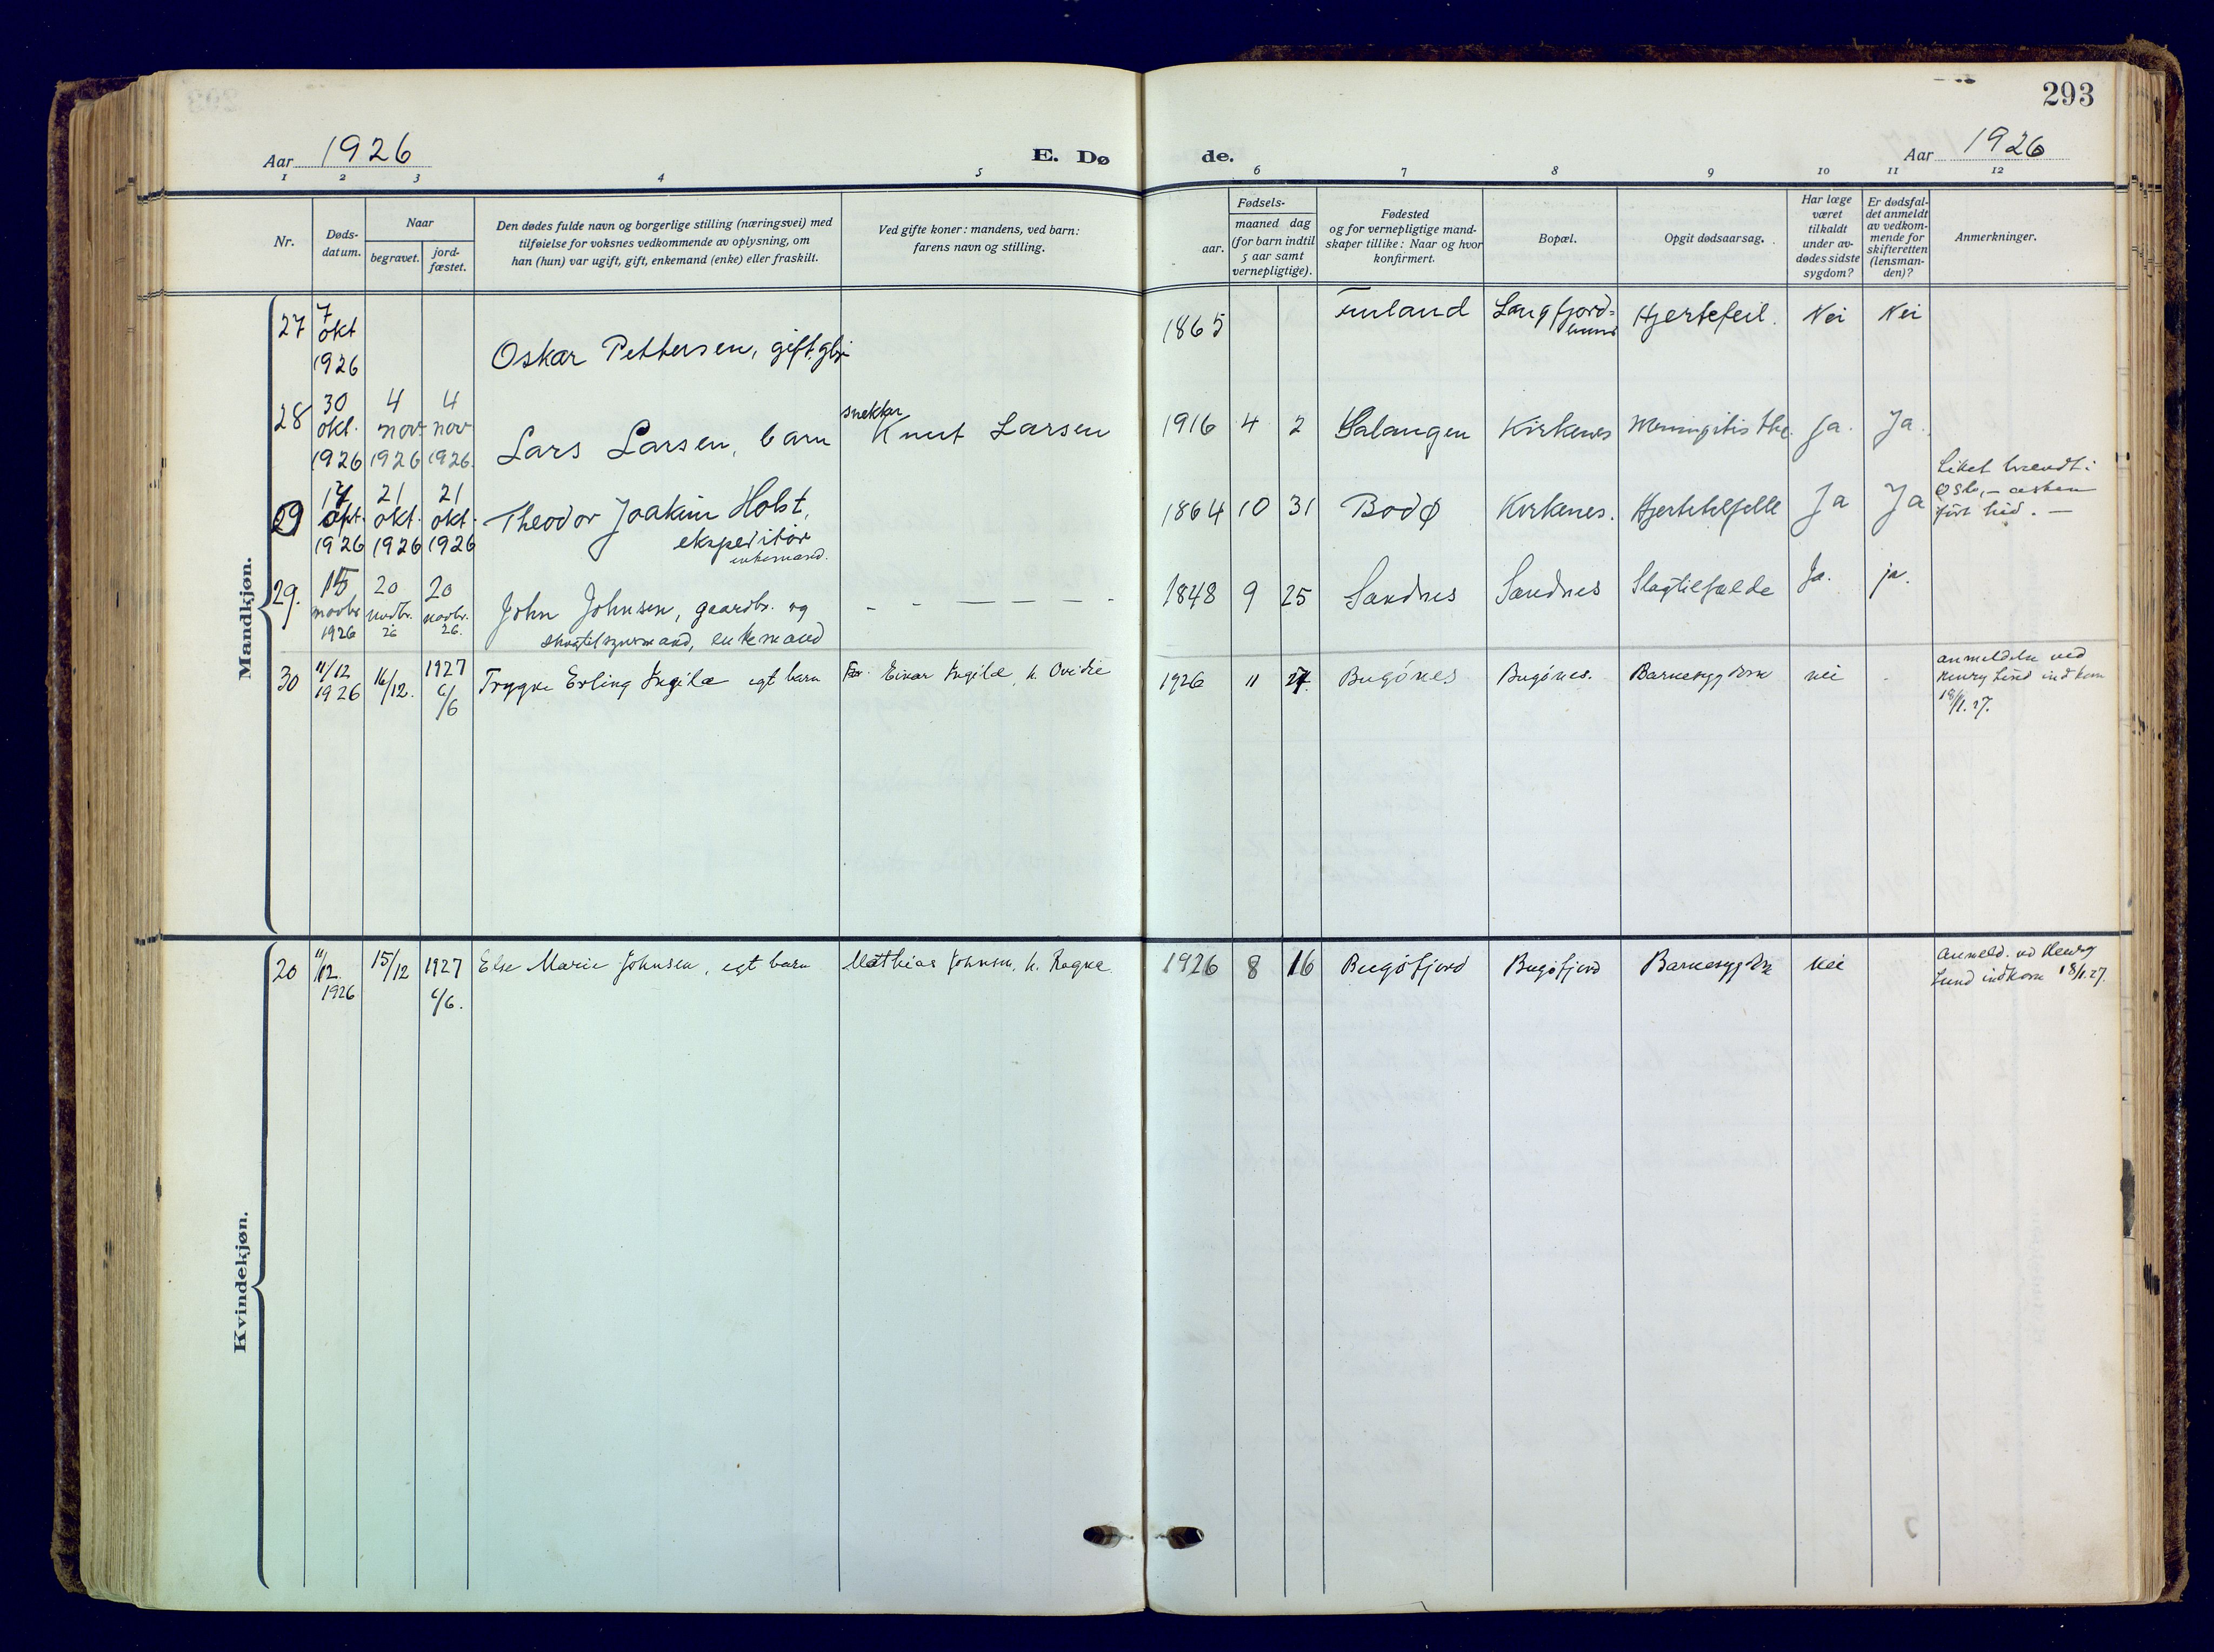 293
Aar 1926
E. Dø
de.
Aar 1926
1 2 3 4 5 6 7 8 9 10 11 12
Nr.
Døds-
datum.
Naar
begravet.
jord-
fæstet.
Den dødes fulde navn og borgerlige stilling (næringsvei) med
tilføielse for voksnes vedkommende av oplysning, om
han (hun) var ugift, gift, enkemand (enke) eller fraskilt.
Ved gifte koner: mandens, ved barn:
farens navn og stilling.
aar.
Fødsels-
maaned dag
(for barn indtil
5 aar samt
vernepligtige).
Fødested
og for vernepligtige mand-
skaper tillike: Naar og hvor
konfirmert.
Bopæl.
Opgit dødsaarsag.
Har læge
været
tilkaldt
under av-
dødes sidste
sygdom?
Er dødsfal-
det anmeldt
av vedkom-
mende for
skifteretten
(lensman-
den)?
Anmerkninger.
Mandkjøn.
27
7
okt
1926
Oskar Pettersen, gift,
1865
Finland
Langfjord=
Hjertefeil.
Nei
Nei
28
30
okt.
1926
4
nov.
1926
4
nov
1926.
Lars Larsen, barn
snekker
Knut Larsen
1916 4 2
Salangen
Kirkenes
Meningitis tbc.
Ja.
Ja.
29
17
okt.
1926
21
okt.
1926
21
okt.
1926
Theodor Joakim Holst,
ekspeditør
enkemand.
1864 10 31
Bodø
Kirkenes.
Hjertetilfelle
Ja
Ja
Liket brendt i
Oslo, – asken
ført hid. –
29.
15
novbr.
1926
20
novbr.
26
20
novbr.
26.
John Johnsen, gaardbr. og
skogtilsynsmand, enkemand
- - — — — -
1848 9 25
Sandnes
Sandnes
Slagtilfælde
Ja.
ja.
30
11/12
1926
16/12.
1927
6/6
Trygve Erling Ingilæ egt barn
Far. Einar Ingilæ, h. Ovidie
1926 11
Bugönes
Bugönes.
Barnesygdom
nei
-
anmeldelse ved
Henry Lund indkom
18/1.27.
Kvindekjøn.
20
11/12.
1926
15/12
1927
6/6.
Else Marie Johnsen, egt barn
Mathias Johnsen, h. Ragna.
1926 8 16
Bugöfjord
Bugöfjord
Barnesygdom
nei
Anmeld. ved Henry
Lund indkom 18/1.27.